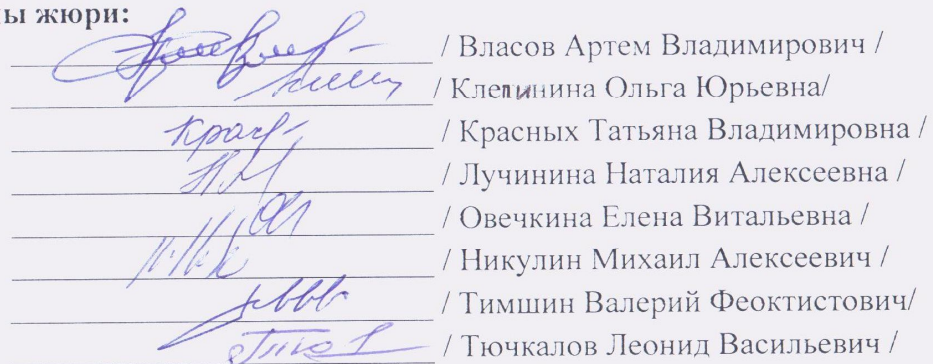 ы жюри:
/ Власов Артем Владимирович /
/ Клепинина Ольга Юрьевна/
/ Красных Татьяна Владимировна /
/ Лучинина Наталия Алексеевна /
/ Овечкина Елена Витальевна /
/ Никулин Михаил Алексеевич /
/ Тимшин Валерий Феоктистович/
/ Тючкалов Леонид Васильевич /